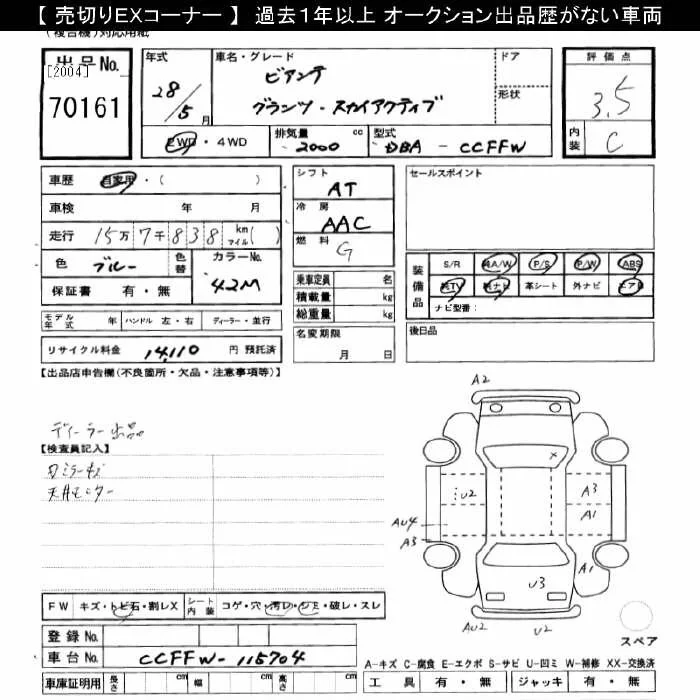 【 売切りEXコーナー 】 過去１年以上 オークション出品歴がない車両
(複合機)対応用紙
出品No.
[2004]
70161
年式
28/5月
車名・グレード
ビアンテ
グランツ・スカイアクティブ
ドア
形状
評価点
3.5
内装
C
2WD・4WD
排気量
2000 cc
型式
DBA - CCFFW
車歴 自家用・( )
車検 年 月
走行 15万7千838 km マイル( )
色 ブルー
色替
カラーNo.
42M
保証書 有・無
シフト
AT
冷房
AAC
燃料
G
セールスポイント
装備品
S/R 純A/W P/S P/W ABS
純TV 純ナビ 革シート 外ナビ エアB
ナビ型番:
乗車定員 名
積載量 kg
総重量 kg
モデル年式 年 ハンドル 左・右 ディーラー・並行
名変期限
月 日
後日品
リサイクル料金 14,110 円 預託済
【出品店申告欄(不良箇所・欠品・注意事項等)】
ディーラー出品
【検査員記入】
天井モニター
A2
X
U2
A3
A1
AU4
A3
A1
U3
A2
U2
スペア
FW キズ・トビ石・割レX シート内装 コゲ・穴・汚レ・シミ・破レ・スレ
登録No.
車台No. CCFFW-115704
A-キズ C-腐食 E-エクボ S-サビ U-凹ミ W-補修 XX-交換済
車庫証明用 長さ cm 幅 cm 高さ cm
工具 有・無 ジャッキ 有・無